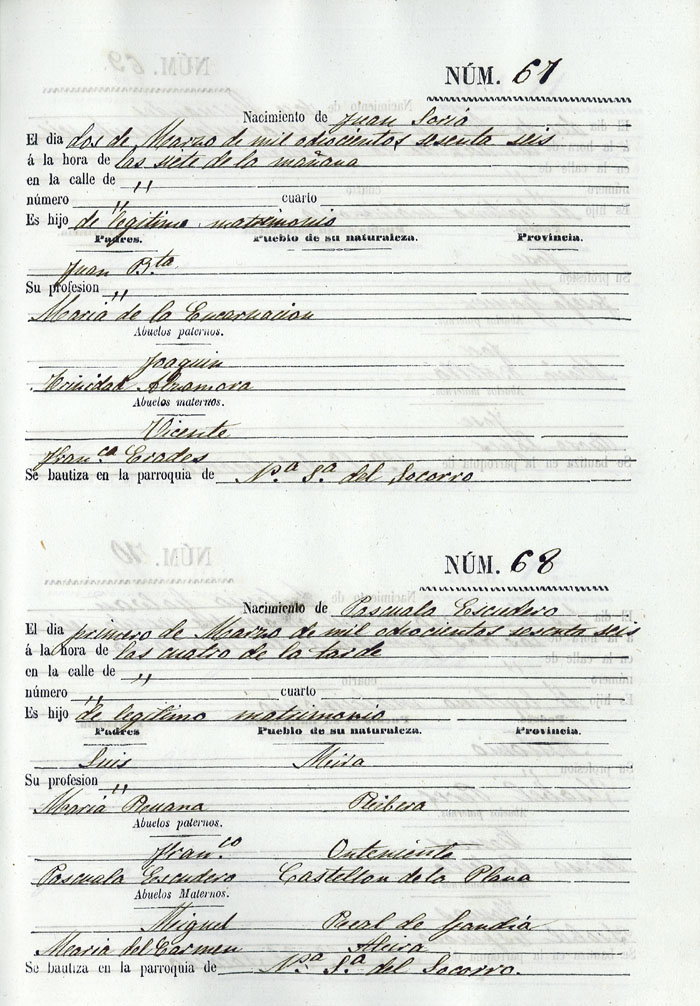 NÚM. 67
Nacimiento de Juan Soria
El dia dos de Marzo de mil odiocientos sesenta seis
á la hora de las siete de la mañana
en la calle de "
número " cuarto
Es hijo de legitimo matrimonio
Padres. Pueblo de su naturaleza. Provincia.
Juan B.ta
Su profesion "
Maria de la Encarnacion
Abuelos paternos.
Joaquin
Trinidad
Abuelos maternos.
Vicente
Fran.ca
Se bautiza en la parroquia de N.a S.a del Socorro
NÚM. 68
Nacimiento de Pascuala Escudero
El dia primero de Marzo de mil odiocientos sesenta seis
á la hora de las cuatro de la tarde
en la calle de "
número " cuarto
Es hijo de legitimo matrimonio
Padres Pueblo de su naturaleza. Provincia.
Luis
Su profesion "
Maria
Abuelos paternos.
Fran.co Onteniente
Pascuala Escudero Castellon de la Plana
Abuelos Maternos.
Miguel Real de Gandia
Maria del Carmen Alcira
Se bautiza en la parroquia de N.a S.a del Socorro.